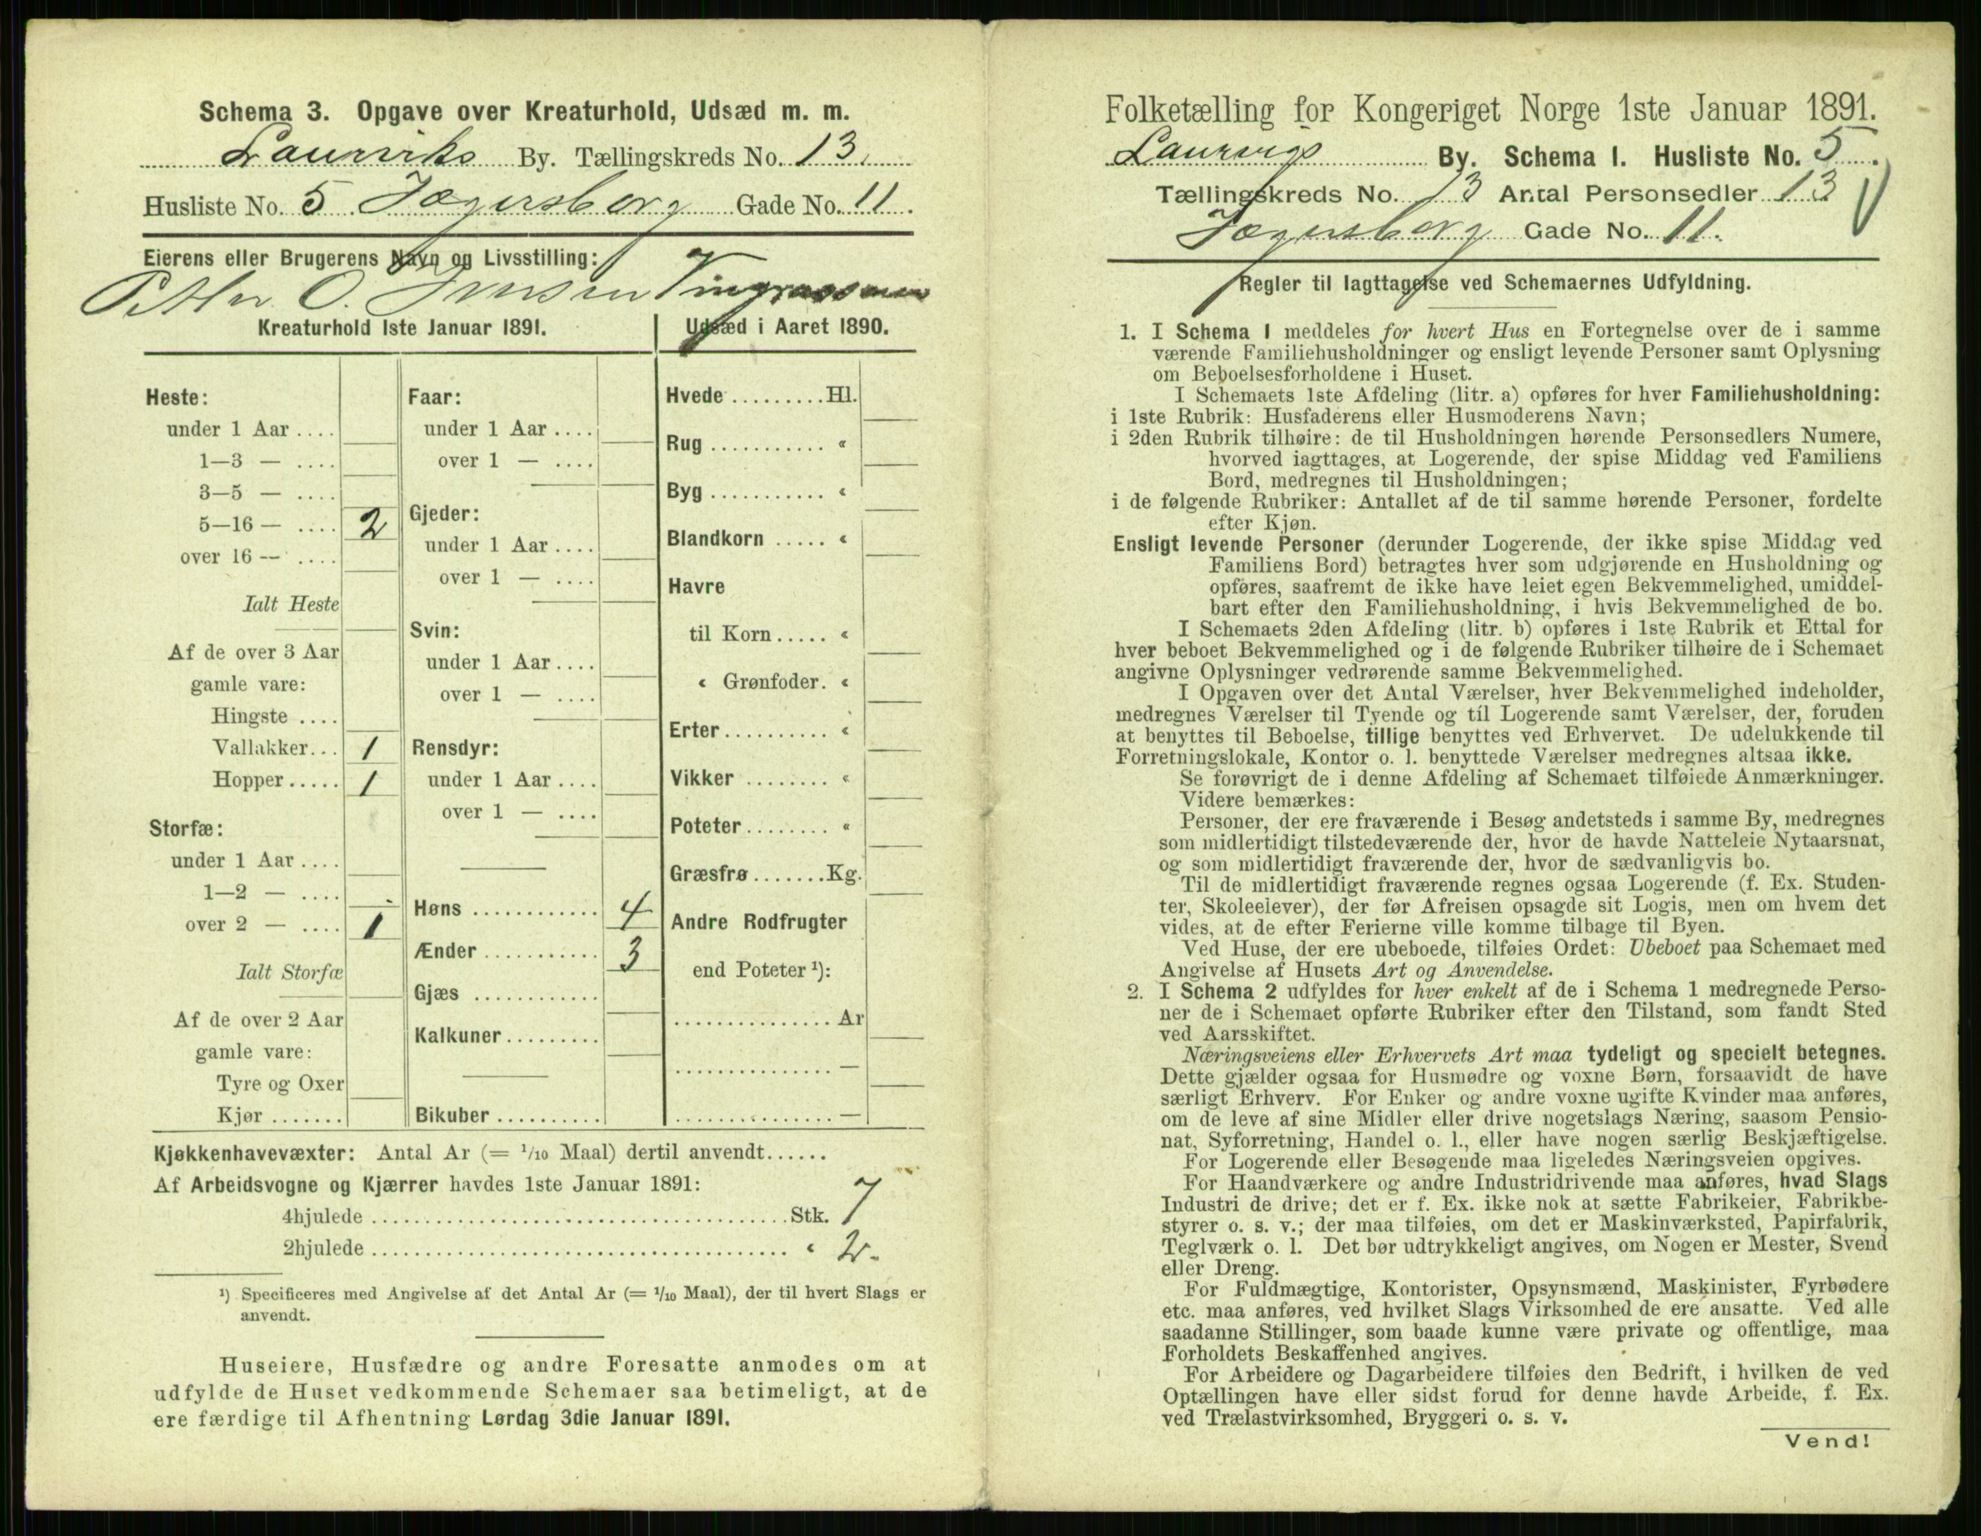 Schema 3. Opgave over Kreaturhold, Udsæd m. m.
Laurviks By. Tællingskreds No. 13.
Husliste No. 5 Jægersborg Gade No. 11.
Eierens eller Brugerens Navn og Livsstilling:
Petter O. Iversen
Kreaturhold 1ste Januar 1891.
Heste:
under 1 Aar ....
1—3 — ....
3—5 — ....
5—16 — .... 2
over 16 — ....
Ialt Heste
Af de over 3 Aar
gamle vare:
Hingste ....
Vallakker... 1
Hopper ..... 1
Storfæ:
under 1 Aar ....
1—2 — ....
over 2 — .... 1
Ialt Storfæ
Af de over 2 Aar
gamle vare:
Tyre og Oxer
Kjør .......
Faar:
under 1 Aar ....
over 1 — ....
Gjeder:
under 1 Aar ....
over 1 — ....
Svin:
under 1 Aar ....
over 1 — ....
Rensdyr:
under 1 Aar ....
over 1 — ....
Høns ............ 4
Ænder ........... 3
Gjæs ............
Kalkuner.........
Bikuber ..........
Udsæd i Aaret 1890.
Hvede .........Hl.
Rug ........... «
Byg ........... «
Blandkorn ..... «
Havre
til Korn ..... «
« Grønfoder. «
Erter .......... «
Vikker ........ «
Poteter ........ «
Græsfrø .......Kg.
Andre Rodfrugter
end Poteter ¹):
............... Ar
............... —
............... —
Kjøkkenhavevæxter: Antal Ar (= 1/10 Maal) dertil anvendt......
Af Arbeidsvogne og Kjærrer havdes 1ste Januar 1891:
4hjulede ........................................Stk. 7
2hjulede ........................................ « 2.
¹) Specificeres med Angivelse af det Antal Ar (= 1/10 Maal), der til hvert Slags er
anvendt.
Huseiere, Husfædre og andre Foresatte anmodes om at
udfylde de Huset vedkommende Schemaer saa betimeligt, at de
ere færdige til Afhentning Lørdag 3die Januar 1891.
Folketælling for Kongeriget Norge 1ste Januar 1891.
Laurvigs By. Schema 1. Husliste No. 5.
Tællingskreds No. 13 Antal Personsedler 13
Jægersborg Gade No. 11.
Regler til Iagttagelse ved Schemaernes Udfyldning.
1. I Schema 1 meddeles for hvert Hus en Fortegnelse over de i samme
værende Familiehusholdninger og ensligt levende Personer samt Oplysning
om Beboelsesforholdene i Huset.
I Schemaets 1ste Afdeling (litr. a) opføres for hver Familiehusholdning:
i 1ste Rubrik: Husfaderens eller Husmoderens Navn;
i 2den Rubrik tilhøire: de til Husholdningen hørende Personsedlers Numere,
hvorved iagttages, at Logerende, der spise Middag ved Familiens
Bord, medregnes til Husholdningen;
i de følgende Rubriker: Antallet af de til samme hørende Personer, fordelte
efter Kjøn.
Ensligt levende Personer (derunder Logerende, der ikke spise Middag ved
Familiens Bord) betragtes hver som udgjørende en Husholdning og
opføres, saafremt de ikke have leiet egen Bekvemmelighed, umiddel-
bart efter den Familiehusholdning, i hvis Bekvemmelighed de bo.
I Schemaets 2den Afdeling (litr. b) opføres i 1ste Rubrik et Ettal for
hver beboet Bekvemmelighed og i de følgende Rubriker tilhøire de i Schemaet
angivne Oplysninger vedrørende samme Bekvemmelighed.
I Opgaven over det Antal Værelser, hver Bekvemmelighed indeholder,
medregnes Værelser til Tyende og til Logerende samt Værelser, der, foruden
at benyttes til Beboelse, tillige benyttes ved Erhvervet. De udelukkende til
Forretningslokale, Kontor o. l. benyttede Værelser medregnes altsaa ikke.
Se forøvrigt de i denne Afdeling af Schemaet tilføiede Anmærkninger.
Videre bemærkes:
Personer, der ere fraværende i Besøg andetsteds i samme By, medregnes
som midlertidigt tilstedeværende der, hvor de havde Natteleie Nytaarsnat,
og som midlertidigt fraværende der, hvor de sædvanligvis bo.
Til de midlertidigt fraværende regnes ogsaa Logerende (f. Ex. Studen-
ter, Skoleelever), der før Afreisen opsagde sit Logis, men om hvem det
vides, at de efter Ferierne ville komme tilbage til Byen.
Ved Huse, der ere ubeboede, tilføies Ordet: Ubeboet paa Schemaet med
Angivelse af Husets Art og Anvendelse.
2. I Schema 2 udfyldes for hver enkelt af de i Schema 1 medregnede Perso-
ner de i Schemaet opførte Rubriker efter den Tilstand, som fandt Sted
ved Aarsskiftet.
Næringsveiens eller Erhvervets Art maa tydeligt og specielt betegnes.
Dette gjælder ogsaa for Husmødre og voxne Børn, forsaavidt de have
særligt Erhverv. For Enker og andre voxne ugifte Kvinder maa anføres,
om de leve af sine Midler eller drive nogetslags Næring, saasom Pensio-
nat, Syforretning, Handel o. l., eller have nogen særlig Beskjæftigelse.
For Logerende eller Besøgende maa ligeledes Næringsveien opgives.
For Haandværkere og andre Industridrivende maa anføres, hvad Slags
Industri de drive; det er f. Ex. ikke nok at sætte Fabrikeier, Fabrikbe-
styrer o. s. v.; der maa tilføies, om det er Maskinværksted, Papirfabrik,
Teglværk o. l. Det bør udtrykkeligt angives, om Nogen er Mester, Svend
eller Dreng.
For Fuldmægtige, Kontorister, Opsynsmænd, Maskinister, Fyrbødere
etc. maa anføres, ved hvilket Slags Virksomhed de ere ansatte. Ved alle
saadanne Stillinger, som baade kunne være private og offentlige, maa
Forholdets Beskaffenhed angives.
For Arbeidere og Dagarbeidere tilføies den Bedrift, i hvilken de ved
Optællingen have eller sidst forud for denne havde Arbeide, f. Ex.
ved Trælastvirksomhed, Bryggeri o. s. v.
Vend!